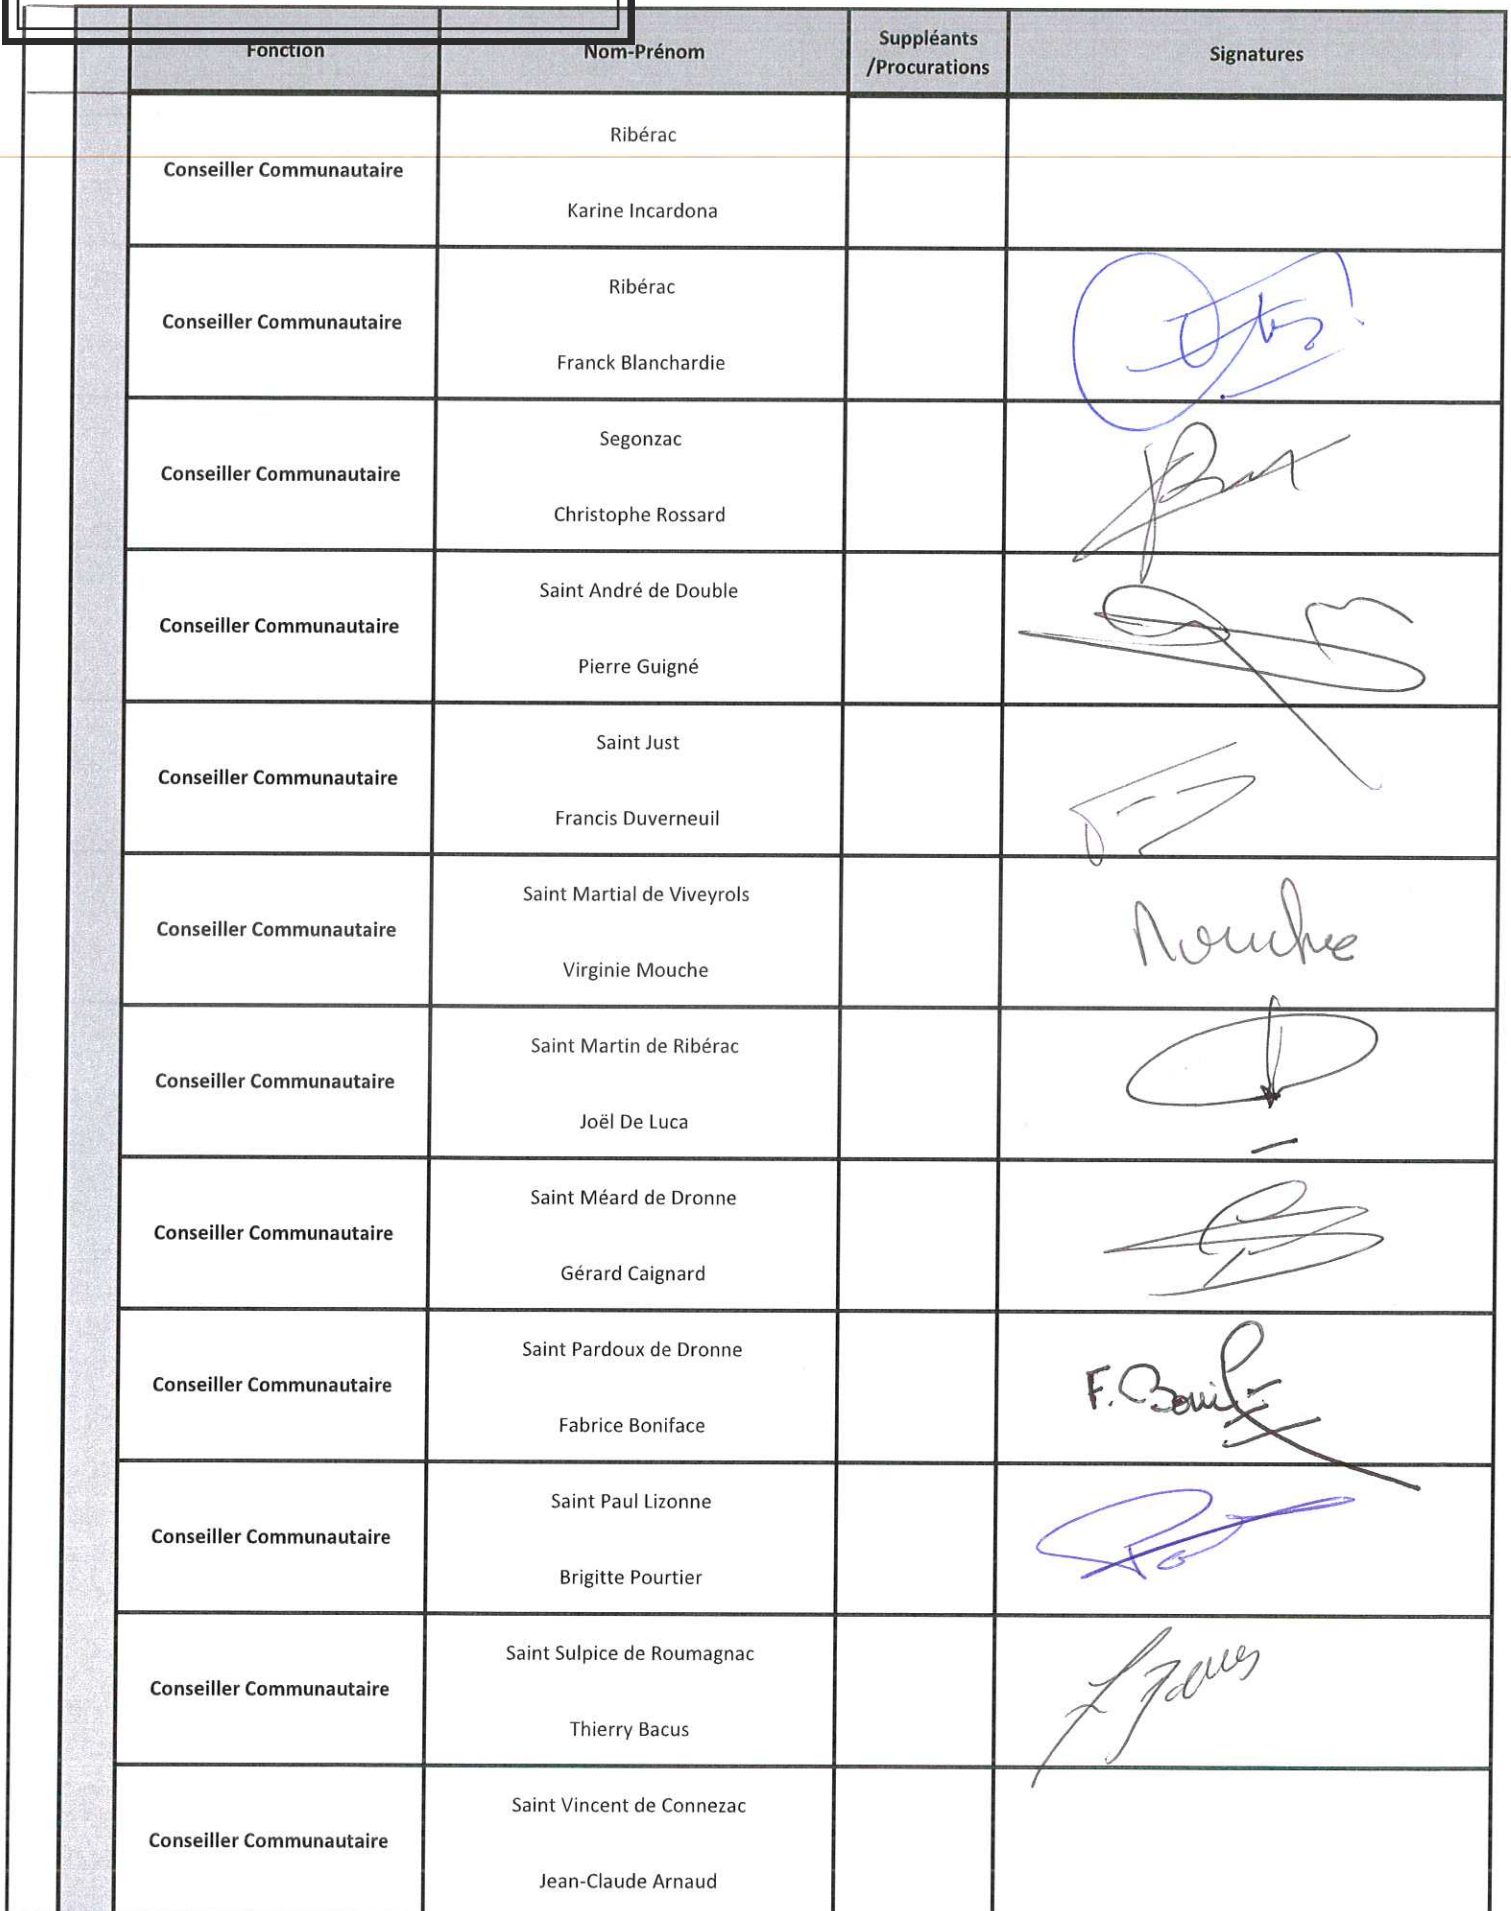 Fonction Nom-Prénom Suppléants /Procurations Signatures
Conseiller Communautaire
Ribérac
Karine Incardona
Conseiller Communautaire
Ribérac
Franck Blanchardie
Conseiller Communautaire
Segonzac
Christophe Rossard
Conseiller Communautaire
Saint André de Double
Pierre Guigné
Conseiller Communautaire
Saint Just
Francis Duverneuil
Conseiller Communautaire
Saint Martial de Viveyrols
Virginie Mouche
Mouche
Conseiller Communautaire
Saint Martin de Ribérac
Joël De Luca
Conseiller Communautaire
Saint Méard de Dronne
Gérard Caignard
Conseiller Communautaire
Saint Pardoux de Dronne
Fabrice Boniface
F. Bonif
Conseiller Communautaire
Saint Paul Lizonne
Brigitte Pourtier
Conseiller Communautaire
Saint Sulpice de Roumagnac
Thierry Bacus
Conseiller Communautaire
Saint Vincent de Connezac
Jean-Claude Arnaud